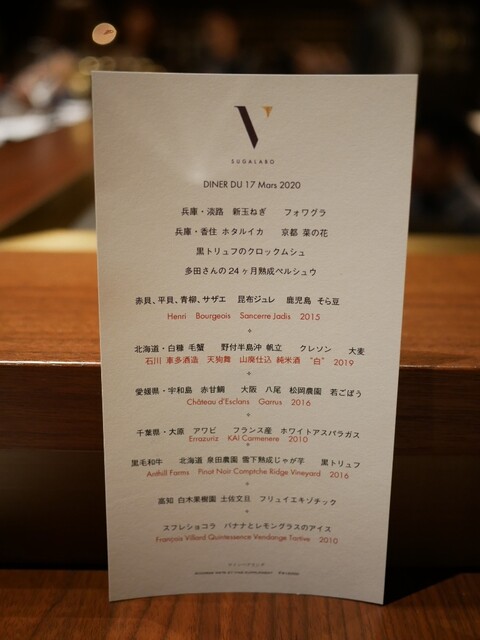 SUGALABO
DINER DU 17 Mars 2020
兵庫・淡路 新玉ねぎ フォワグラ
兵庫・香住 ホタルイカ 京都 菜の花
黒トリュフのクロックムシュ
多田さんの24ヶ月熟成ペルシュウ
赤貝、平貝、青柳、サザエ 昆布ジュレ 鹿児島 そら豆
Henri Bourgeois Sancerre Jadis 2015
北海道・白糠 毛蟹 野付半島沖 帆立 クレソン 大麦
石川 車多酒造 天狗舞 山廃仕込 純米酒 "白" 2019
愛媛県・宇和島 赤甘鯛 大阪 八尾 松岡農園 若ごぼう
Château d'Esclans Garrus 2016
千葉県・大原 アワビ フランス産 ホワイトアスパラガス
Errazuriz KAI Carmenere 2010
黒毛和牛 北海道 泉田農園 雪下熟成じゃが芋 黒トリュフ
Anthill Farms Pinot Noir Comptche Ridge Vineyard 2016
高知 白木果樹園 土佐文旦 フリュイエキゾチック
スフレショコラ バナナとレモングラスのアイス
François Villard Quintessence Vendange Tardive 2010